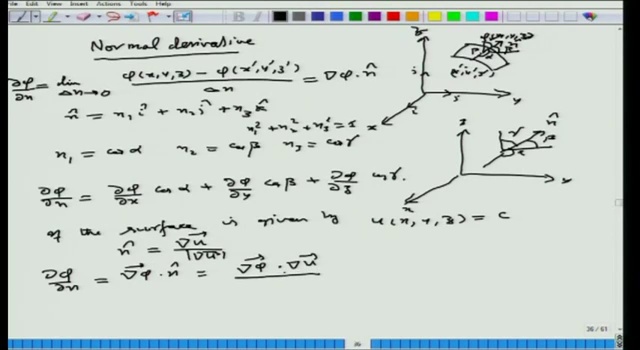 Edit View Insert Actions Tools Help
Normal derivative
∂φ/∂n = lim Δn→0 (φ(x,y,z) − φ(x',y',z'))/Δn = ∇φ·n̂
n̂ = n₁ î + n₂ ĵ + n₃ k̂
n₁² + n₂² + n₃² = 1
n₁ = cosα n₂ = cosβ n₃ = cosγ
∂φ/∂n = ∂φ/∂x cosα + ∂φ/∂y cosβ + ∂φ/∂z cosγ.
If the surface is given by u(x,y,z) = c
n̂ = ∇u/|∇u|
∂φ/∂n = ∇φ · n̂ = ∇φ · ∇u
z
φ(x,y,z)
(x',y',z')
y
x
z
n̂
γ
β
α
y
x
26 / 61
36